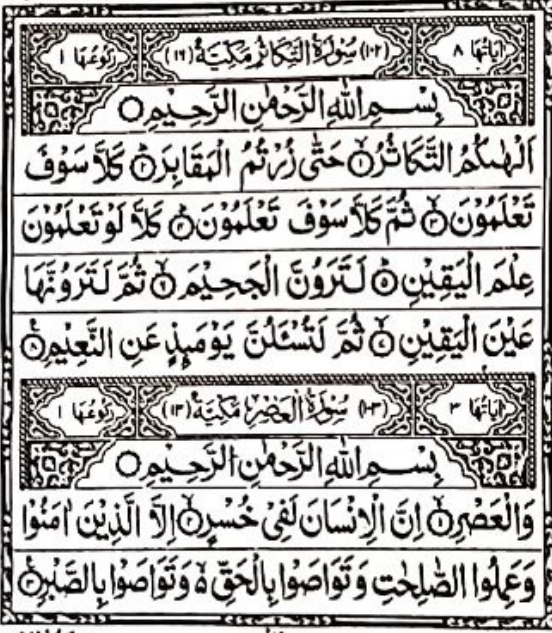 اٰيَاتُهَا ٨ (١٠٢) سُوْرَةُ التَّكَاثُرِ مَكِّيَّةٌ (١٦) رُكُوْعُهَا ١
بِسْمِ اللّٰهِ الرَّحْمٰنِ الرَّحِيْمِ ○
اَلْهٰىكُمُ التَّكَاثُرُ ۙ﴿١﴾ حَتّٰى زُرْتُمُ الْمَقَابِرَ ؕ﴿٢﴾ كَلَّا سَوْفَ
تَعْلَمُوْنَ ۙ﴿٣﴾ ثُمَّ كَلَّا سَوْفَ تَعْلَمُوْنَ ؕ﴿٤﴾ كَلَّا لَوْ تَعْلَمُوْنَ
عِلْمَ الْيَقِيْنِ ؕ﴿٥﴾ لَتَرَوُنَّ الْجَحِيْمَ ۙ﴿٦﴾ ثُمَّ لَتَرَوُنَّهَا
عَيْنَ الْيَقِيْنِ ۙ﴿٧﴾ ثُمَّ لَتُسْـَٔلُنَّ يَوْمَىِٕذٍ عَنِ النَّعِيْمِ ﴿٨﴾
اٰيَاتُهَا ٣ (١٠٣) سُوْرَةُ الْعَصْرِ مَكِّيَّةٌ (١٣) رُكُوْعُهَا ١
بِسْمِ اللّٰهِ الرَّحْمٰنِ الرَّحِيْمِ ○
وَالْعَصْرِ ۙ﴿١﴾ اِنَّ الْاِنْسَانَ لَفِىْ خُسْرٍ ۙ﴿٢﴾ اِلَّا الَّذِيْنَ اٰمَنُوْا
وَعَمِلُوا الصّٰلِحٰتِ وَتَوَاصَوْا بِالْحَقِّ ۙ۬ وَتَوَاصَوْا بِالصَّبْرِ ﴿٣﴾